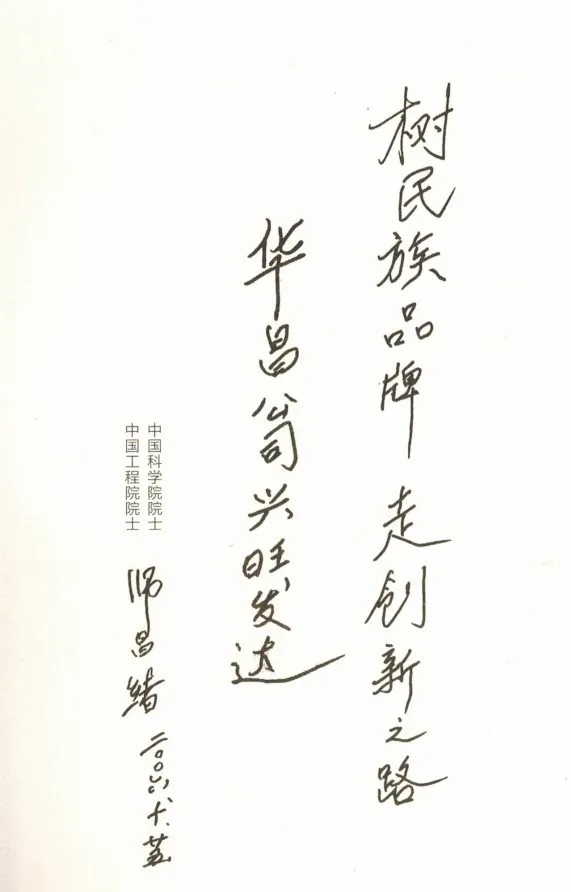 树民族品牌 走创新之路
华昌公司兴旺发达
中国科学院院士
中国工程院院士
师昌绪
二〇〇六、十、